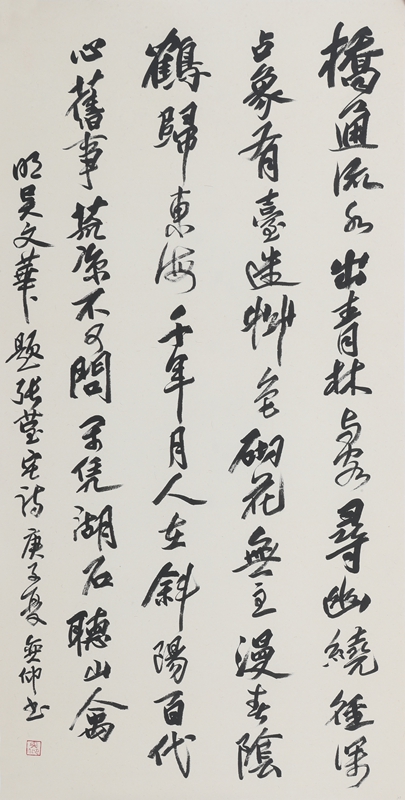 橋通流水出青林與客尋幽繞徑深
占象有臺迷艸色砌花無主漫春陰
鶴歸東海千年月人在斜陽百代
心舊事荒凉不可問凭湖石聽山禽
明吳文華題張宅詩庚子夏仲书